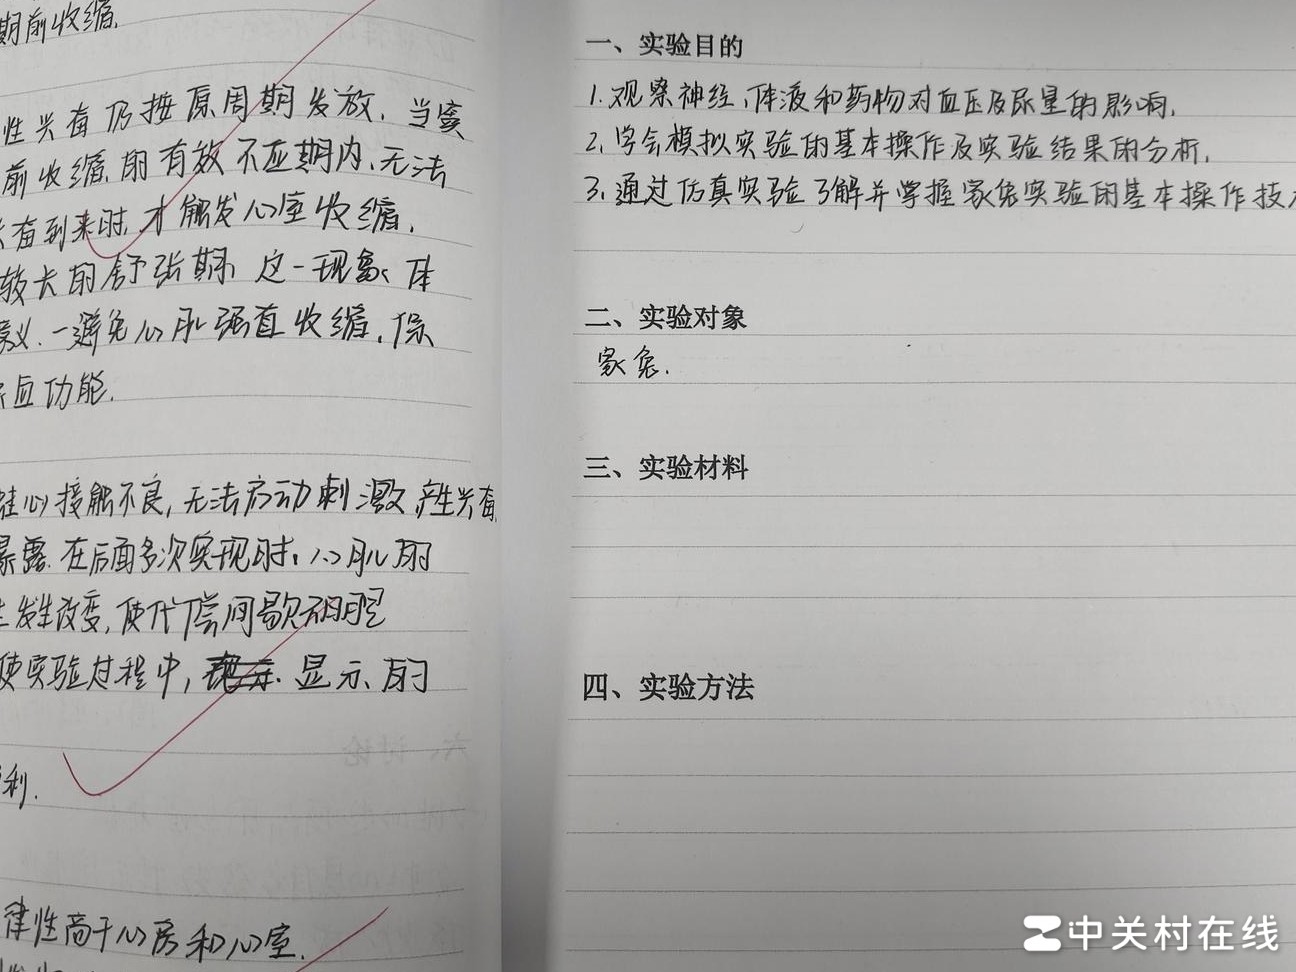 期前收缩.
性兴奋仍按原周期发放.当窦
前收缩的有效不应期内,无法
兴奋到来时,才触发心室收缩.
较长的舒张期 这一现象体
义.一避免心肌强直收缩.保
应功能.
蛙心接触不良,无法启动刺激产生兴奋
暴露.在后面多次实现时,心肌的
发生改变,使代偿间歇不明显
使实验过程中, 显示的
利.
律性高于心房和心室.
一、实验目的
1.观察神经、体液和药物对血压及尿量的影响.
2.学会模拟实验的基本操作及实验结果的分析.
3.通过仿真实验了解并掌握家兔实验的基本操作技
二、实验对象
家兔.
三、实验材料
四、实验方法
中关村在线